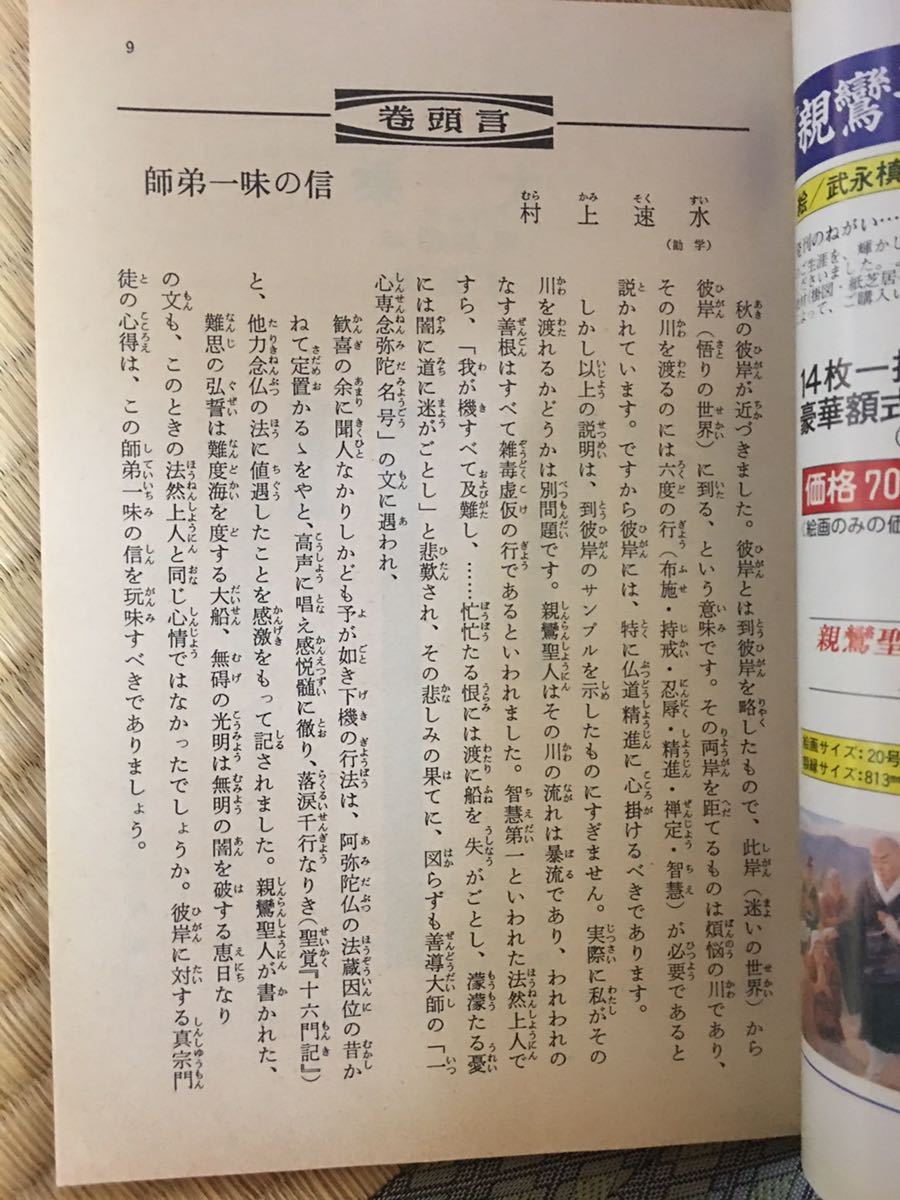 9
巻頭言
師弟一味の信
村上速水
(勧学)
秋の彼岸が近づきました。彼岸とは到彼岸を略したもので、此岸(迷いの世界)から
彼岸(悟りの世界)に到る、という意味です。その両岸を距てるものは煩悩の川であり、
その川を渡るのには六度の行(布施・持戒・忍辱・精進・禅定・智慧)が必要であると
説かれています。ですから彼岸には、特に仏道精進に心掛けるべきであります。
しかし以上の説明は、到彼岸のサンプルを示したものにすぎません。実際に私がその
川を渡れるかどうかは別問題です。親鸞聖人はその川の流れは暴流であり、われわれの
なす善根はすべて雑毒虚仮の行であるといわれました。智慧第一といわれた法然上人で
すら、「我が機すべて及難し、……忙忙たる恨には渡に船を失がごとし、濛濛たる憂
には闇に道に迷がごとし」と悲歎され、その悲しみの果てに、図らずも善導大師の「一
心専念弥陀名号」の文に遇われ、
歓喜の余に聞人なかりしかども予が如き下機の行法は、阿弥陀仏の法蔵因位の昔か
ねて定置かるゝをやと、高声に唱え感悦髄に徹り、落涙千行なりき(聖覚『十六門記』)
と、他力念仏の法に値遇したことを感激をもって記されました。親鸞聖人が書かれた、
難思の弘誓は難度海を度する大船、無碍の光明は無明の闇を破する恵日なり
の文も、このときの法然上人と同じ心情ではなかったでしょうか。彼岸に対する真宗門
徒の心得は、この師弟一味の信を玩味すべきでありましょう。
親鸞
絵/武永槙
発刊のねがい…
14枚一
豪華額式
価格 70
(絵画のみの価
親鸞聖
絵画サイズ:20号
額縁サイズ:813m